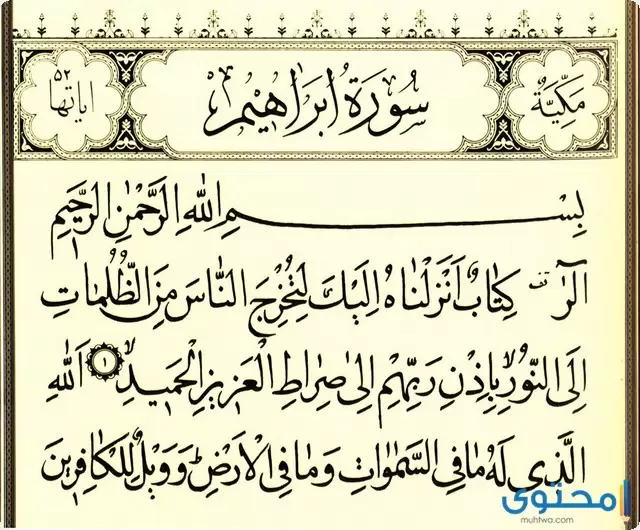 مَكِّيَّةٌ
سُورَةُ اِبْرَاهِيمَ
اياتها ٥٢
بِسْمِ اللهِ الرَّحْمٰنِ الرَّحِيمِ
الٓرٰ كِتَابٌ اَنْزَلْنَاهُ اِلَيْكَ لِتُخْرِجَ النَّاسَ مِنَ الظُّلُمَاتِ
اِلَى النُّورِ بِاِذْنِ رَبِّهِمْ اِلٰى صِرَاطِ الْعَزِيزِ الْحَمِيدِ ١ اَللهِ
الَّذِي لَهُ مَا فِي السَّمٰوَاتِ وَمَا فِي الْاَرْضِ وَوَيْلٌ لِلْكَافِرِينَ
محتوى
muhtwa.com